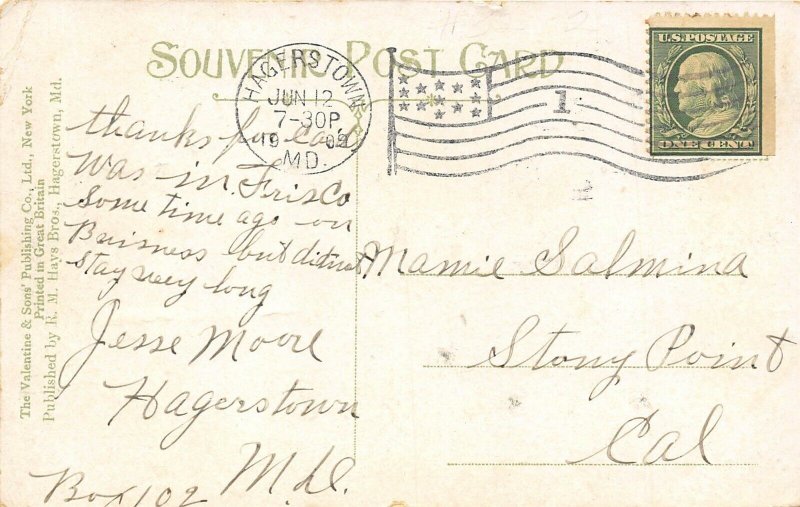 SOUVENIR POST CARD
HAGERSTOWN
JUN 12
7-30P
1909
MD.
1
U.S. POSTAGE
ONE CENT
The Valentine & Sons' Publishing Co., Ltd., New York
Printed in Great Britain
Published by R. M. Hays Bros., Hagerstown, Md.
thanks for Card
Was in Frisco
Some time ago on
Buisness but didnot
stay very long
Jesse Moore
Hagerstown
Md.
Box 102
Mamie Salmina
Stony Point
Cal